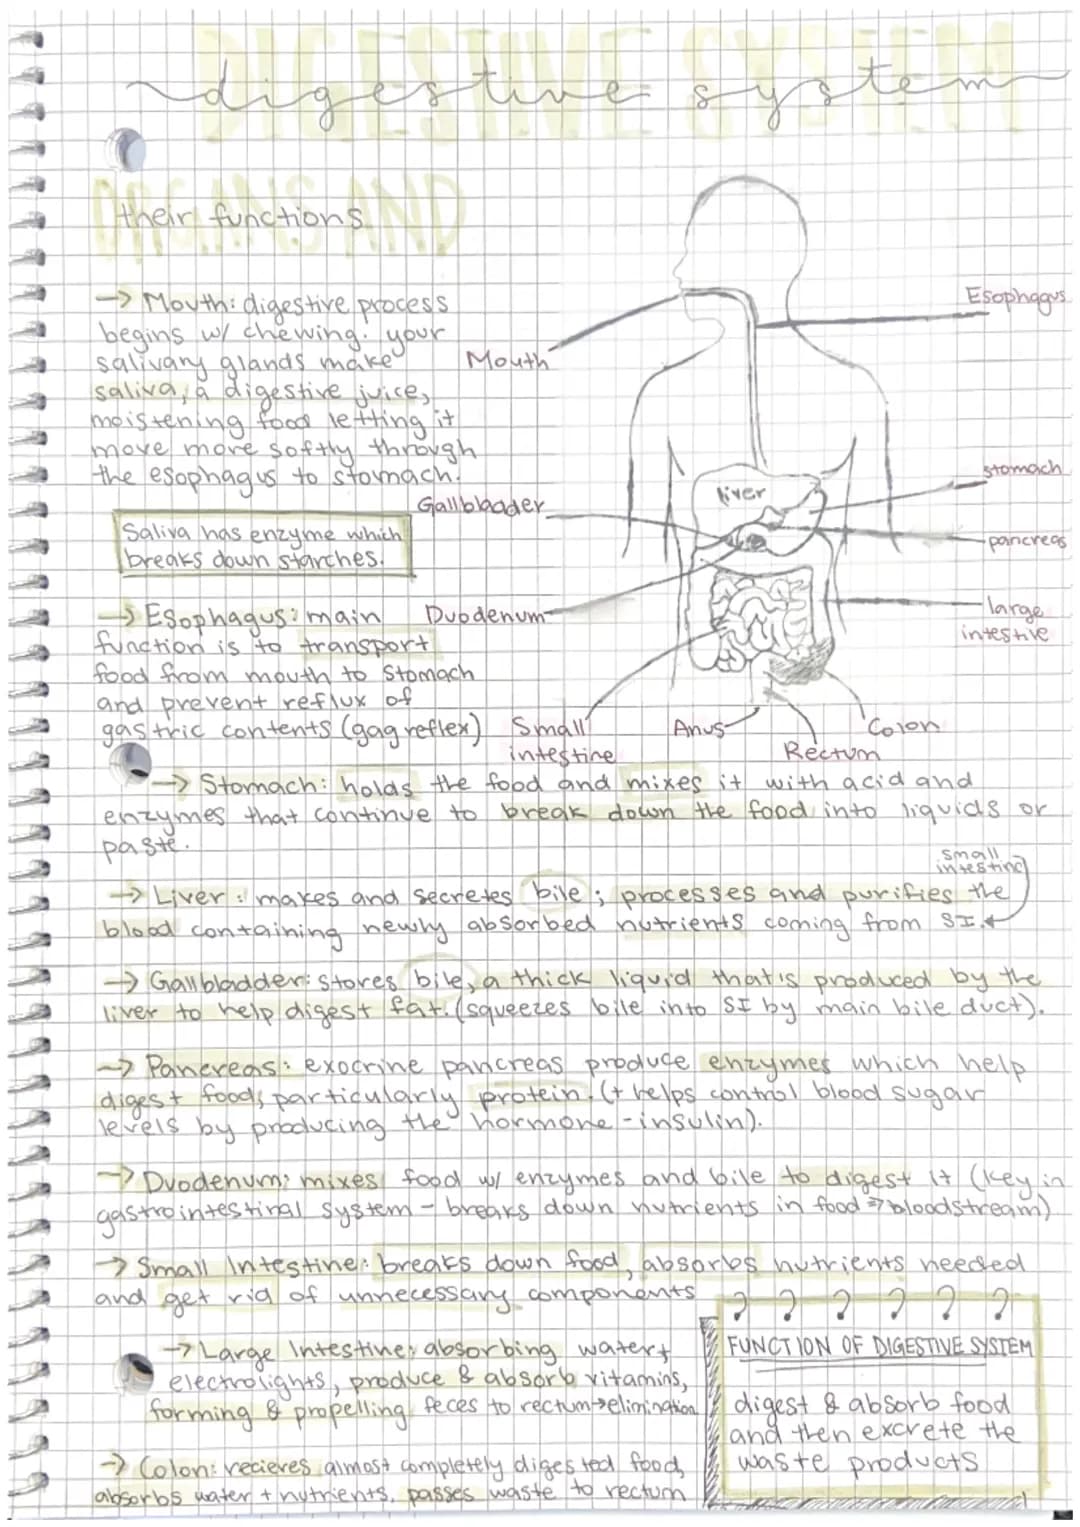 DIGESTIVE SYSTEM
digestive system
ORGANS AND
their functions
→ Mouth: digestive process
begins w/ chewing. your
salivary glands make
saliva, a digestive juice,
moistening food letting it
move more softly through
the esophagus to stomach.
Saliva has enzyme which
breaks down starches.
→ Esophagus: main
function is to transport
food from mouth to stomach
and prevent reflux of
gastric contents (gag reflex)
Mouth
Esophagus
liver
stomach
Gallbladder
pancreas
Duodenum
large
intestive
Small
intestine
Anus
Rectum
Colon
→ Stomach: holds the food and mixes it with acid and
enzymes that continue to break down the food into liquids or
paste.
small
intestine
→ Liver: makes and secretes bile; processes and purifies the
blood containing newly absorbed nutrients coming from SI.
→ Gallbladder: stores bile, a thick liquid that's produced by the
liver to help digest fat. (squeezes bile into SI by main bile duct).
→ Pancreas: exocrine pancreas produce enzymes which help
digest food, particularly protein. (+ helps control blood sugar
levels by producing the hormone - insulin).
→ Duodenum: mixes food w/ enzymes and bile to digest it (key in
gastrointestinal system - breaks down nutrients in food ⇒ bloodstream)
→ Small Intestine: breaks down food, absorbs nutrients needed
and get rid of unnecessary components
→ Large Intestine: absorbing water +
electrolights, produce & absorb vitamins,
forming & propelling feces to rectum → elimination
→ Colon: recieves almost completely digested food,
absorbs water + nutrients, passes waste to rectum
? ? ? ? ? ?
FUNCTION OF DIGESTIVE SYSTEM
digest & absorb food
and then excrete the
waste products